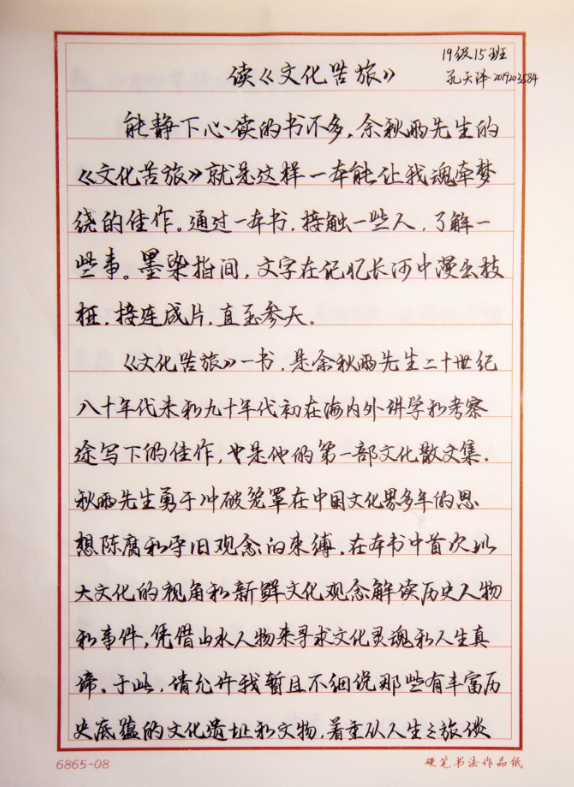 19级15班
读《文化苦旅》
孔天泽 2019203584
能静下心读的书不多，余秋雨先生的
《文化苦旅》就是这样一本能让我魂牵梦
绕的佳作。通过一本书，接触一些人，了解一
些事。墨染指间，文字在记忆长河中漫出枝
桠，接连成片，直至参天。
《文化苦旅》一书，是余秋雨先生二十世纪
八十年代末和九十年代初在海内外讲学和考察
途写下的佳作，也是他的第一部文化散文集.
秋雨先生勇于冲破笼罩在中国文化界多年的思
想陈腐和守旧观念的束缚，在本书中首次以
大文化的视角和新鲜文化观念解读历史人物
和事件，凭借山水人物来寻求文化灵魂和人生真
谛。于此，请允许我暂且不细说那些有丰富历
史底蕴的文化遗址和文物，着重从人生之旅谈
6865-08
硬笔书法作品纸